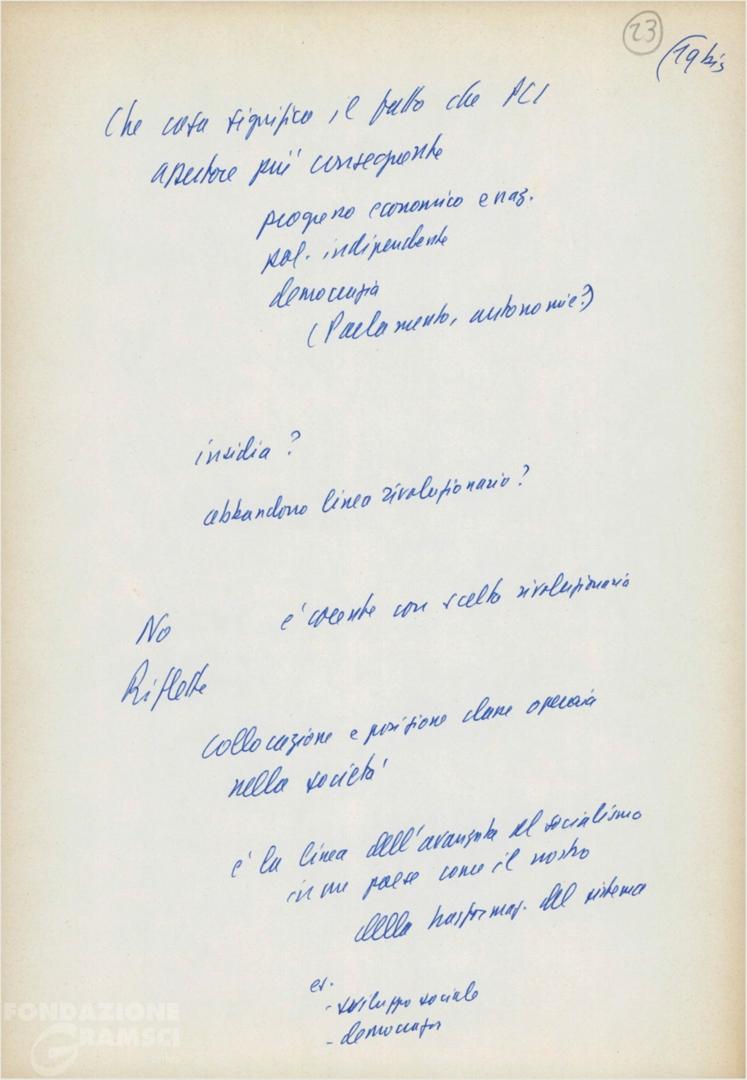 23
(19 bis
Che cosa significa il fatto che PCI
assertore più conseguente
progresso economico e naz.
pol. indipendente
democrazia
(Parlamento, autonomie?)
insidia?
abbandono linea rivoluzionaria?
No è coerente con scelta rivoluzionaria
Riflette
collocazione e posizione classe operaia
nella società
è la linea dell'avanzata al socialismo
in un paese come il nostro
della trasformaz. del sistema
es.
- sviluppo sociale
- democrazia
FONDAZIONE
GRAMSCI